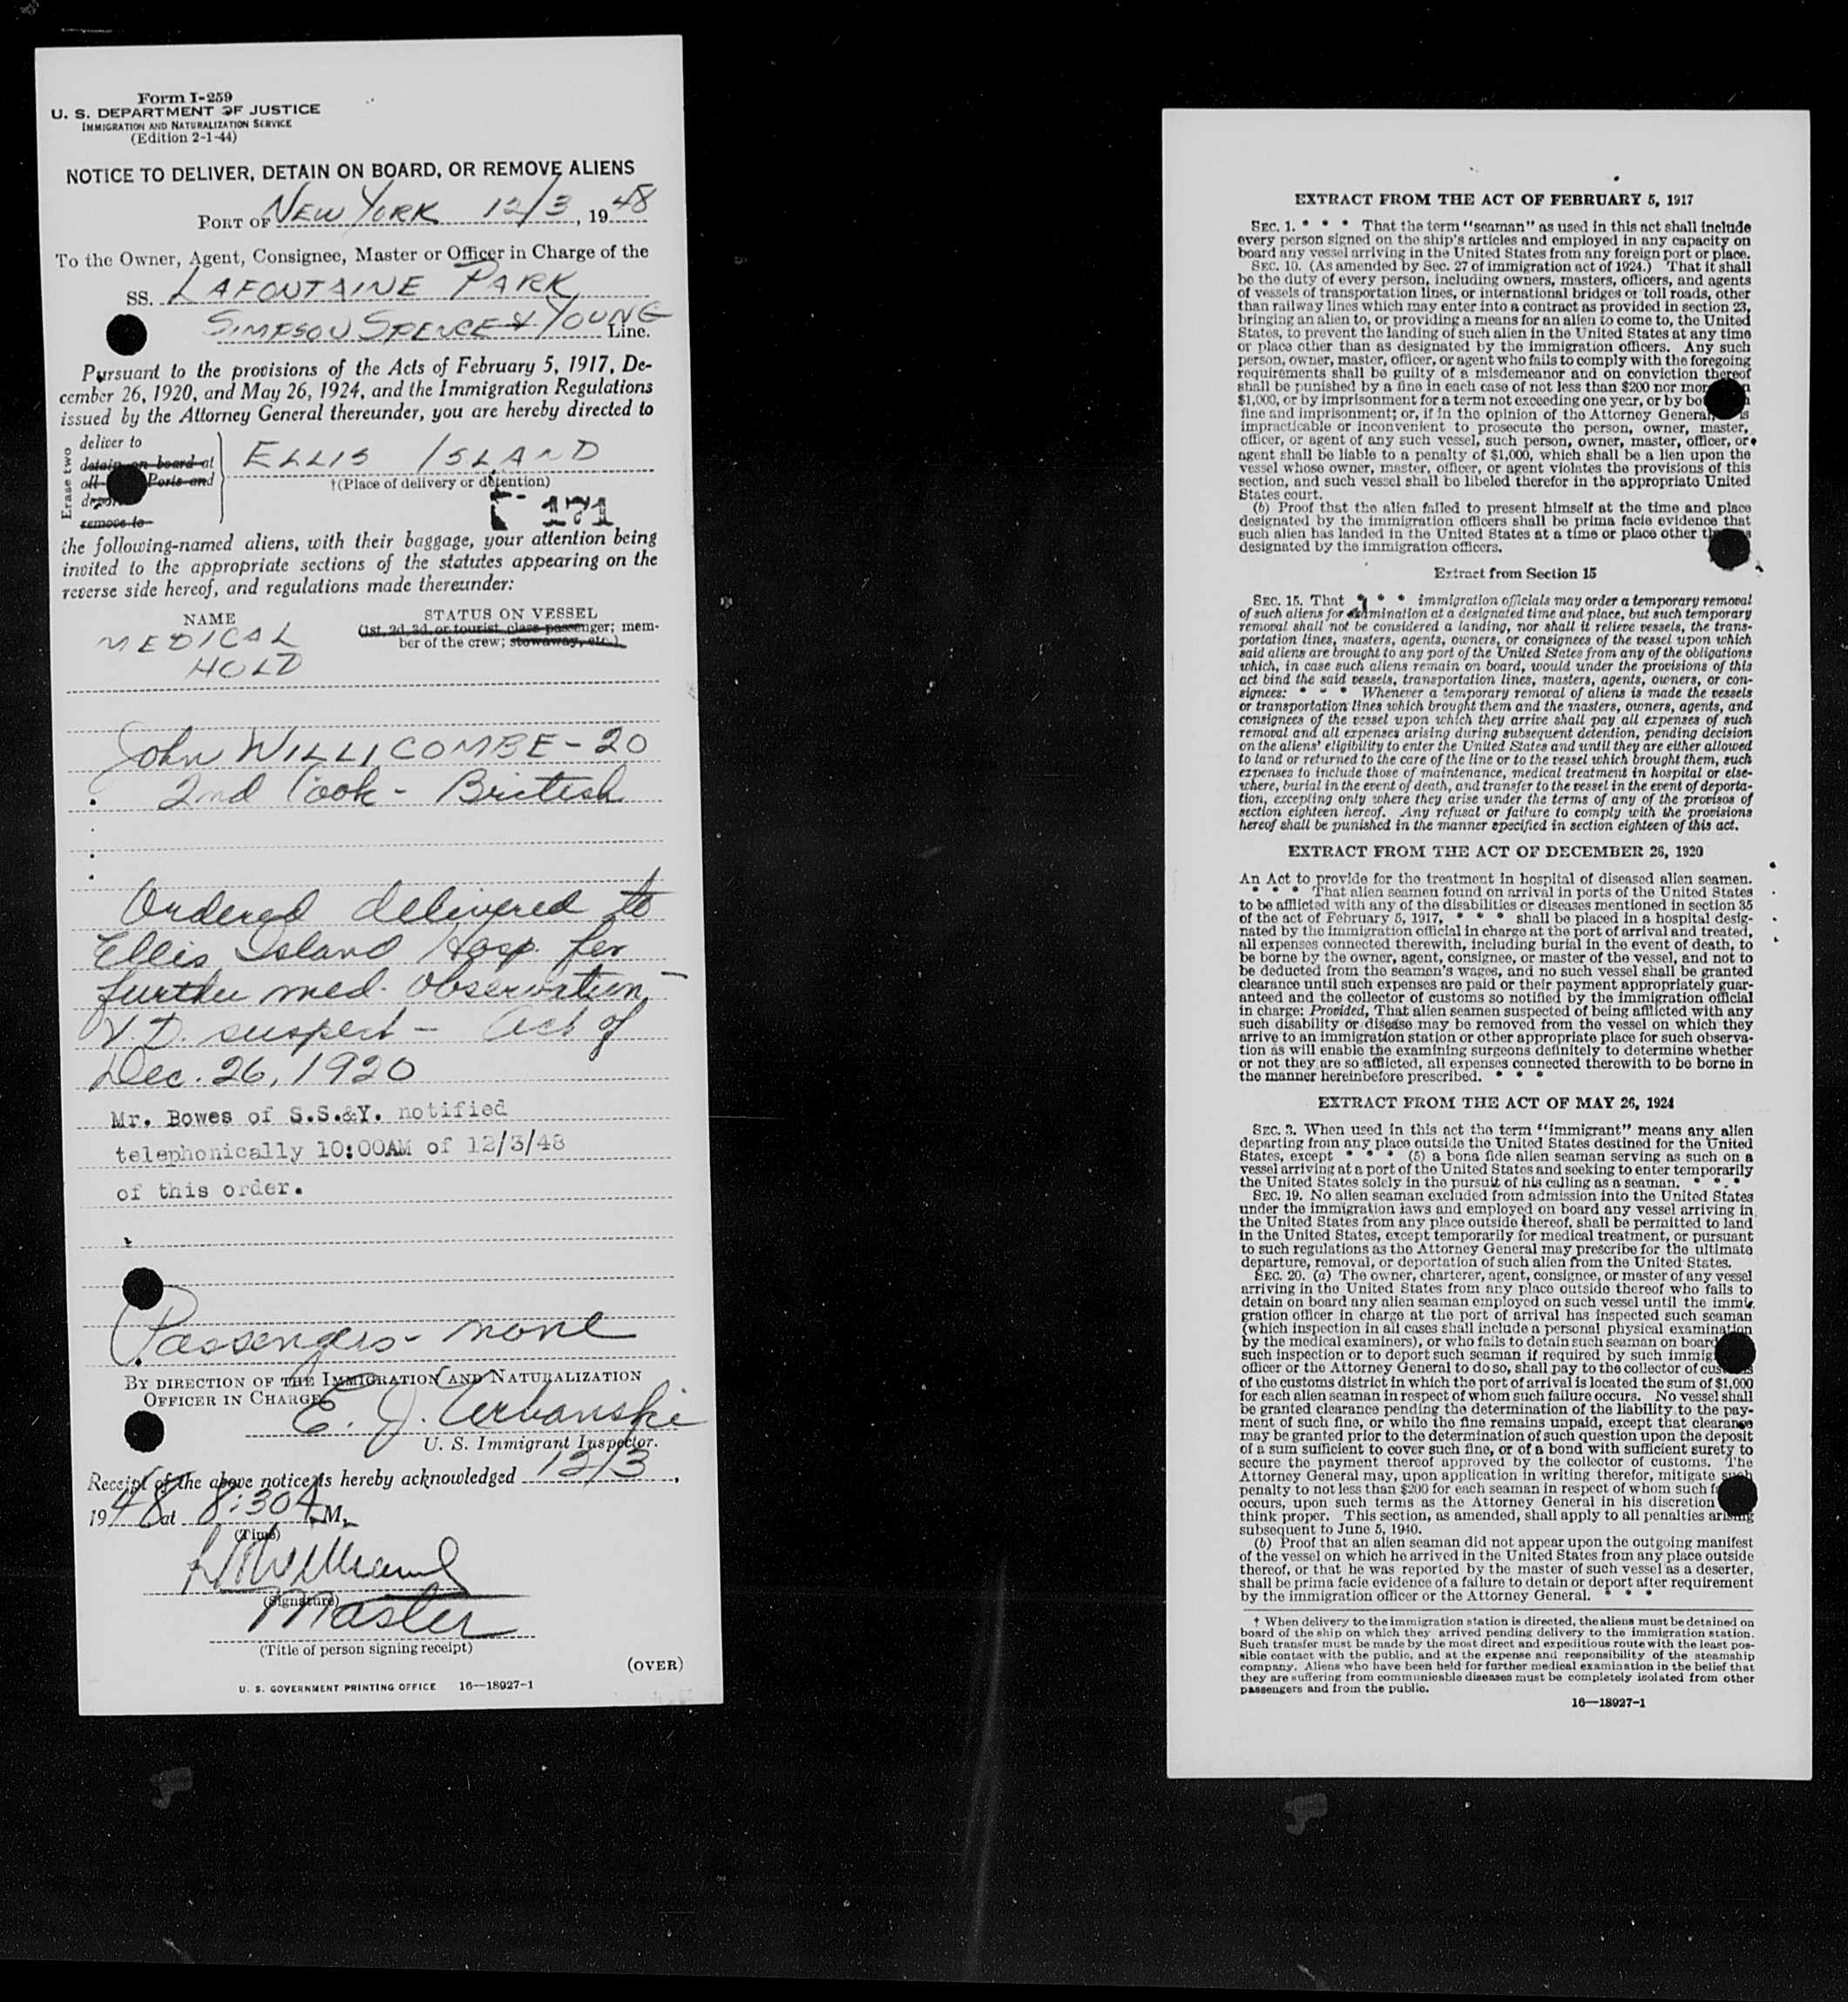 Form I-259
U. S. DEPARTMENT OF JUSTICE
IMMIGRATION AND NATURALIZATION SERVICE
(Edition 2-1-44)
NOTICE TO DELIVER, DETAIN ON BOARD, OR REMOVE ALIENS
PORT OF NEW YORK 12/3, 1948
To the Owner, Agent, Consignee, Master or Officer in Charge of the
SS. LAFONTAINE PARK
SIMPSON SPENCE & YOUNG Line.
Pursuant to the provisions of the Acts of February 5, 1917, De-
cember 26, 1920, and May 26, 1924, and the Immigration Regulations
issued by the Attorney General thereunder, you are hereby directed to
Erase two
deliver to
detain on board at
all Ports and
remove to
ELLIS ISLAND
†(Place of delivery or detention)
171
the following-named aliens, with their baggage, your attention being
invited to the appropriate sections of the statutes appearing on the
reverse side hereof, and regulations made thereunder:
NAME
STATUS ON VESSEL
(1st, 2d, 3d, or tourist class passenger; mem-
ber of the crew; stowaway, etc.)
MEDICAL
HOLD
John WILLICOMBE - 20
2nd Cook - British
Ordered delivered to
Ellis Island Hosp. for
further med. observation -
V.D. suspect - Act of
Dec. 26, 1920
Mr. Bowes of S.S.&Y. notified
telephonically 10:00AM of 12/3/48
of this order.
Passengers - none
BY DIRECTION OF THE IMMIGRATION AND NATURALIZATION
OFFICER IN CHARGE
E. J. Urbanski
U. S. Immigrant Inspector.
Receipt of the above notice is hereby acknowledged 12/3,
1948 at 8:30 A.M.
(Time)
(Signature)
Master
(Title of person signing receipt)
(OVER)
U. S. GOVERNMENT PRINTING OFFICE 16—18927-1
EXTRACT FROM THE ACT OF FEBRUARY 5, 1917
SEC. 1. * * * That the term "seaman" as used in this act shall include
every person signed on the ship's articles and employed in any capacity on
board any vessel arriving in the United States from any foreign port or place.
SEC. 10. (As amended by Sec. 27 of immigration act of 1924.) That it shall
be the duty of every person, including owners, masters, officers, and agents
of vessels of transportation lines, or international bridges or toll roads, other
than railway lines which may enter into a contract as provided in section 23,
bringing an alien to, or providing a means for an alien to come to, the United
States, to prevent the landing of such alien in the United States at any time
or place other than as designated by the immigration officers. Any such
person, owner, master, officer, or agent who fails to comply with the foregoing
requirements shall be guilty of a misdemeanor and on conviction thereof
shall be punished by a fine in each case of not less than $200 nor
$1,000, or by imprisonment for a term not exceeding one year, or by
fine and imprisonment; or, if in the opinion of the Attorney General, is
impracticable or inconvenient to prosecute the person, owner, master,
officer, or agent of any such vessel, such person, owner, master, officer, or
agent shall be liable to a penalty of $1,000, which shall be a lien upon the
vessel whose owner, master, officer, or agent violates the provisions of this
section, and such vessel shall be libeled therefor in the appropriate United
States court.
(b) Proof that the alien failed to present himself at the time and place
designated by the immigration officers shall be prima facie evidence that
such alien has landed in the United States at a time or place other
designated by the immigration officers.
Extract from Section 15
SEC. 15. That * * * immigration officials may order a temporary removal
of such aliens for examination at a designated time and place, but such temporary
removal shall not be considered a landing, nor shall it relieve vessels, the trans-
portation lines, masters, agents, owners, or consignees of the vessel upon which
said aliens are brought to any port of the United States from any of the obligations
which, in case such aliens remain on board, would under the provisions of this
act bind the said vessels, transportation lines, masters, agents, owners, or con-
signees: * * * Whenever a temporary removal of aliens is made the vessels
or transportation lines which brought them and the masters, owners, agents, and
consignees of the vessel upon which they arrive shall pay all expenses of such
removal and all expenses arising during subsequent detention, pending decision
on the aliens' eligibility to enter the United States and until they are either allowed
to land or returned to the care of the line or to the vessel which brought them, such
expenses to include those of maintenance, medical treatment in hospital or else-
where, burial in the event of death, and transfer to the vessel in the event of deporta-
tion, excepting only where they arise under the terms of any of the provisos of
section eighteen hereof. Any refusal or failure to comply with the provisions
hereof shall be punished in the manner specified in section eighteen of this act.
EXTRACT FROM THE ACT OF DECEMBER 26, 1920
An Act to provide for the treatment in hospital of diseased alien seamen.
* * * That alien seamen found on arrival in ports of the United States
to be afflicted with any of the disabilities or diseases mentioned in section 35
of the act of February 5, 1917, * * * shall be placed in a hospital desig-
nated by the immigration official in charge at the port of arrival and treated,
all expenses connected therewith, including burial in the event of death, to
be borne by the owner, agent, consignee, or master of the vessel, and not to
be deducted from the seamen's wages, and no such vessel shall be granted
clearance until such expenses are paid or their payment appropriately guar-
anteed and the collector of customs so notified by the immigration official
in charge: Provided, That alien seamen suspected of being afflicted with any
such disability or disease may be removed from the vessel on which they
arrive to an immigration station or other appropriate place for such observa-
tion as will enable the examining surgeons definitely to determine whether
or not they are so afflicted, all expenses connected therewith to be borne in
the manner hereinbefore prescribed. * * *
EXTRACT FROM THE ACT OF MAY 26, 1924
SEC. 3. When used in this act the term "immigrant" means any alien
departing from any place outside the United States destined for the United
States, except * * * (5) a bona fide alien seaman serving as such on a
vessel arriving at a port of the United States and seeking to enter temporarily
the United States solely in the pursuit of his calling as a seaman. * * *
SEC. 19. No alien seaman excluded from admission into the United States
under the immigration laws and employed on board any vessel arriving in
the United States from any place outside thereof, shall be permitted to land
in the United States, except temporarily for medical treatment, or pursuant
to such regulations as the Attorney General may prescribe for the ultimate
departure, removal, or deportation of such alien from the United States.
SEC. 20. (a) The owner, charterer, agent, consignee, or master of any vessel
arriving in the United States from any place outside thereof who fails to
detain on board any alien seaman employed on such vessel until the immi-
gration officer in charge at the port of arrival has inspected such seaman
(which inspection in all cases shall include a personal physical examination
by the medical examiners), or who fails to detain such seaman on board
such inspection or to deport such seaman if required by such
officer or the Attorney General to do so, shall pay to the collector of
of the customs district in which the port of arrival is located the sum of $1,000
for each alien seaman in respect of whom such failure occurs. No vessel shall
be granted clearance pending the determination of the liability to the pay-
ment of such fine, or while the fine remains unpaid, except that clearance
may be granted prior to the determination of such question upon the deposit
of a sum sufficient to cover such fine, or of a bond with sufficient surety to
secure the payment thereof approved by the collector of customs. The
Attorney General may, upon application in writing therefor, mitigate such
penalty to not less than $200 for each seaman in respect of whom such
occurs, upon such terms as the Attorney General in his discretion
think proper. This section, as amended, shall apply to all penalties arising
subsequent to June 5, 1940.
(b) Proof that an alien seaman did not appear upon the outgoing manifest
of the vessel on which he arrived in the United States from any place outside
thereof, or that he was reported by the master of such vessel as a deserter,
shall be prima facie evidence of a failure to detain or deport after requirement
by the immigration officer or the Attorney General. * * *
† When delivery to the immigration station is directed, the aliens must be detained on
board of the ship on which they arrived pending delivery to the immigration station.
Such transfer must be made by the most direct and expeditious route with the least pos-
sible contact with the public, and at the expense and responsibility of the steamship
company. Aliens who have been held for further medical examination in the belief that
they are suffering from communicable diseases must be completely isolated from other
passengers and from the public.
16—18927-1